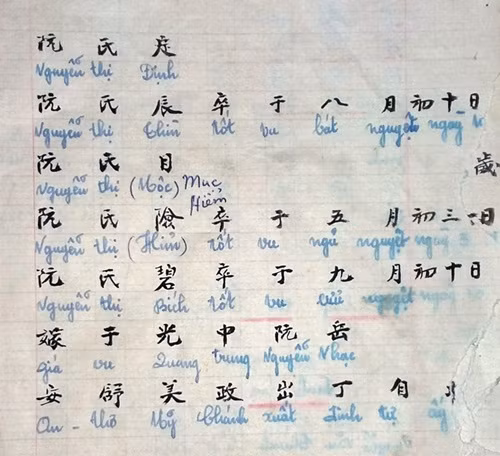 阮 氏 定
Nguyễn thị Định
阮 氏 辰 卒 于 八 月 初 十 日
Nguyễn thị Thìn tốt vu bát nguyệt ngày 10
阮 氏 目
Nguyễn thị (Mộc) Mục
歲
Hiểm
阮 氏 險 卒 于 五 月 初 三 日
Nguyễn thị (Hiểm) tốt vu ngũ nguyệt ngày 3
阮 氏 碧 卒 于 九 月 初 十 日
Nguyễn thị Bích tốt vu cửu nguyệt ngày
嫁 于 光 中 阮 岳
giá vu Quang trung Nguyễn Nhạc
安 舒 美 政 出 丁 自
An - thơ Mỹ Chánh xuất Đinh tự ấy